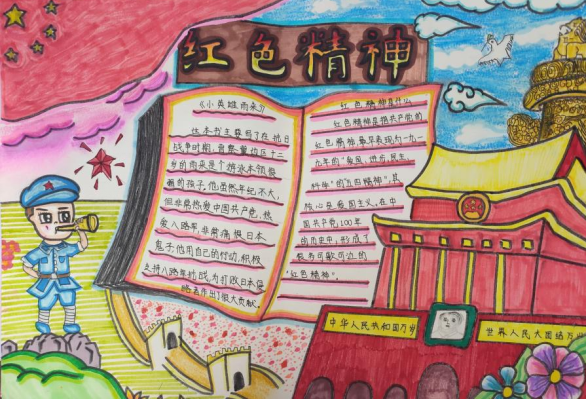 红色精神
《小英雄雨来》
这本书主要写了在抗日
战争时期,晋察冀边区十二
岁的雨来是个游泳本领很
高的孩子,他虽然年纪不大,
但非常热爱中国共产党,热
爱八路军,非常痛恨日本
鬼子,他用自己的行动,积极
支持八路军抗战,为打败日本侵
略者作出了很大贡献。
红色精神是什么
红色精神是指共产党的
红色精神,最早表现为一九一
九年的“爱国、进步、民主、
科学”的“五四精神”,其
核心是爱国主义,在中
国共产党100年
的历史中,形成了
很多可歌可泣的
“红色精神”。
中华人民共和国万岁
世界人民大团结万岁